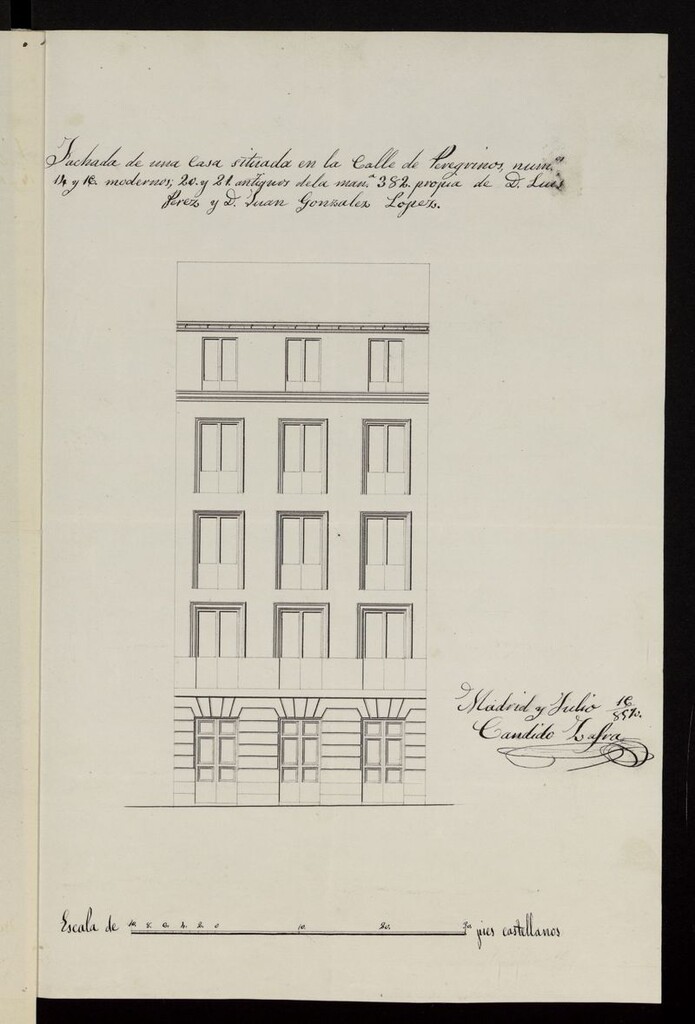 Fachada de una casa situada en la Calle de Peregrinos, num.ˢ
14 y 16 modernos, 20 y 21 antiguos de la man.ª 382 propia de D. Luis
Perez y D. Juan Gonzalez Lopez.
Madrid y Julio 16/
Candido Zafra
Escala de 10 8 6 4 2 0 10 20 30 pies castellanos